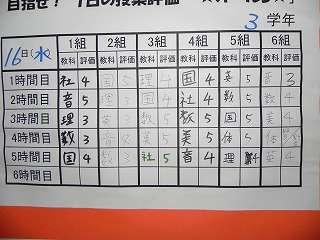 目指せ! 1日の授業評価
3学年
16日(水) 1組 2組 3組 4組 5組 6組
教科 評価 教科 評価 教科 評価 教科 評価 教科 評価 教科 評価
1時間目 社 4 国 5 理 4 国 4 英 5 英 3
2時間目 音 5 理 3 国 4 社 4 数 5 数 4
3時間目 理 3 英 3 数 5 数 5 国 5 英 4
4時間目 数 3 音 5 英 5 美 5 体 5 体
5時間目 国 4 数 3 社 5 音 4 理 4 英 4
6時間目